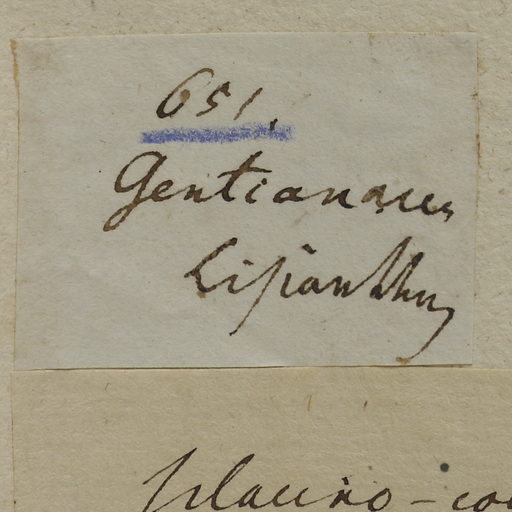 651.
Gentianaceen
Lisianthus